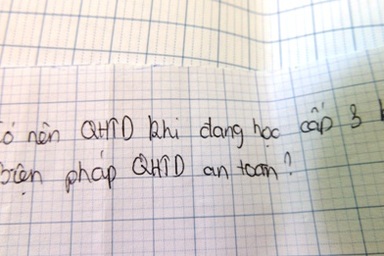 ó nên QHTD khi đang học cấp 3
biện pháp QHTD an toàn?